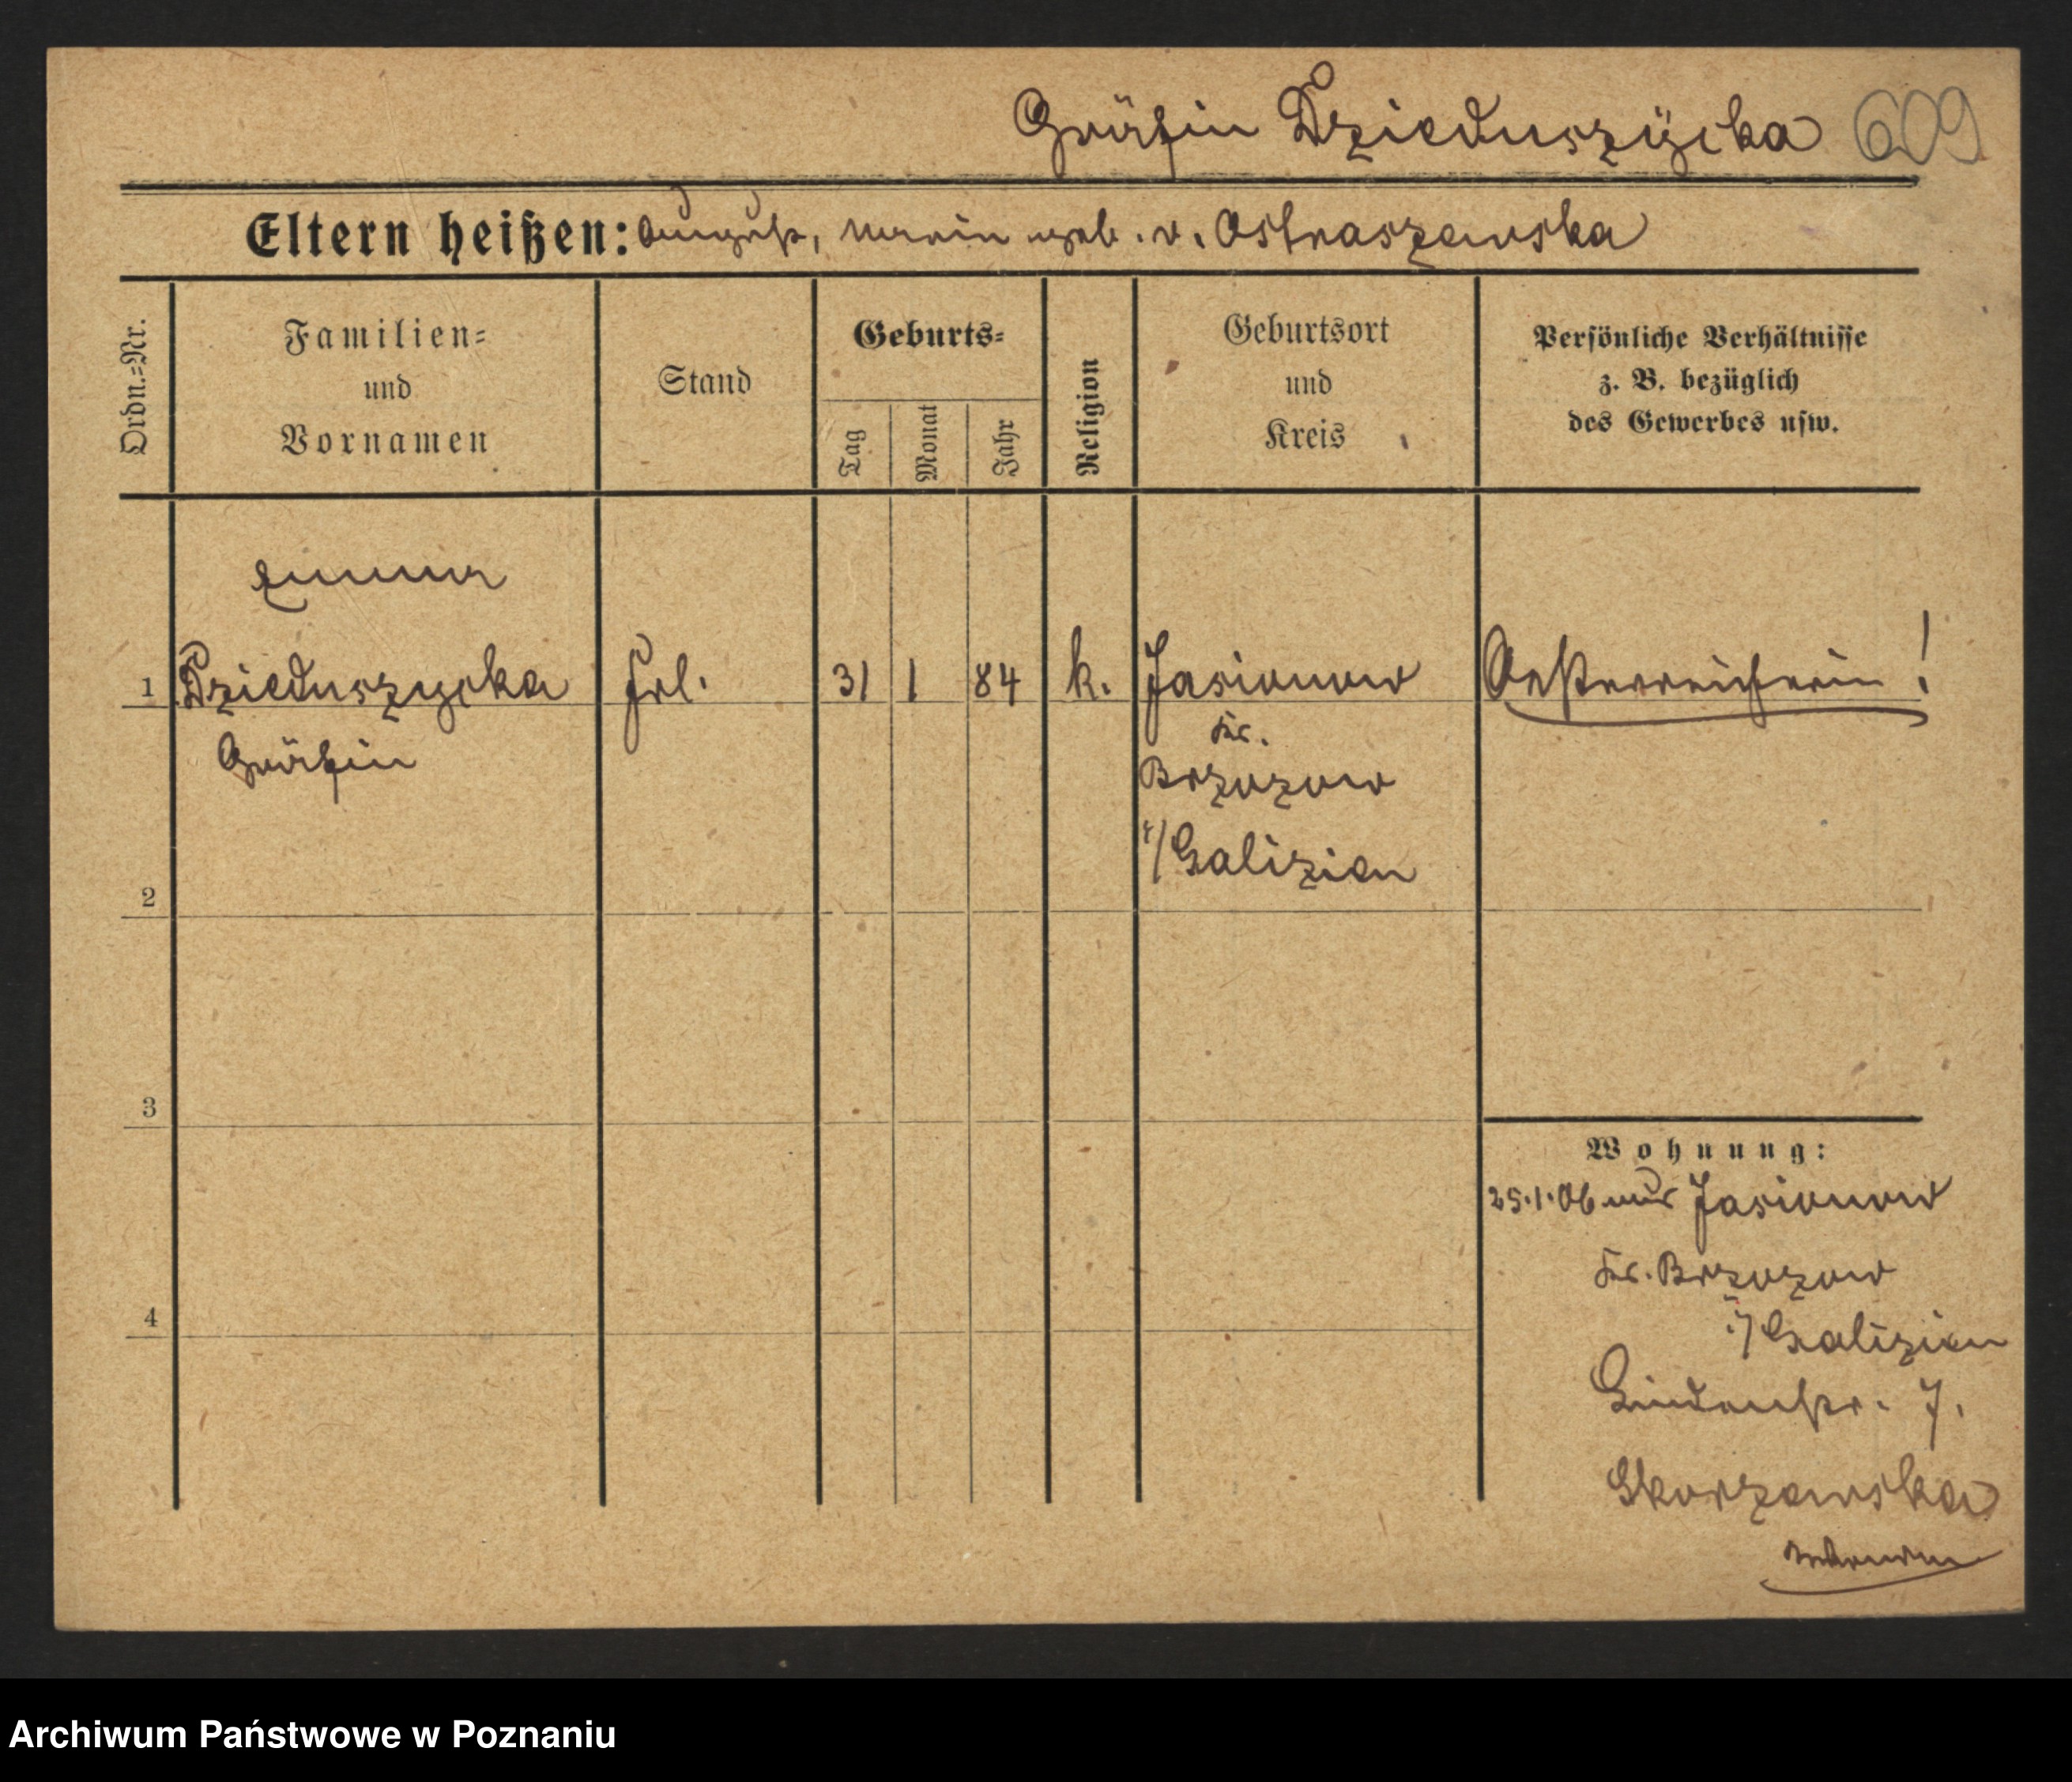 Gräfin Dzieduszÿcka 609
Eltern heißen: August, Marie geb. v. Ostraszewska
Ordn.=Nr.
Familien=
und
Vornamen
Stand
Geburts=
Tag
Monat
Jahr
Religion
Geburtsort
und
Kreis
Persönliche Verhältnisse
z. B. bezüglich
des Gewerbes usw.
Emma
1 Dzieduszycka Frl. 31 1 84 k. Jasionow Oesterreicherin!
Gräfin
Kr.
Brzozow
i/Galizien
2
3
4
Wohnung:
25.1.06 aus Jasionow
Kr. Brzozow
i/Galizien
Lindenstr. 7.
Skorzewska
Archiwum Państwowe w Poznaniu